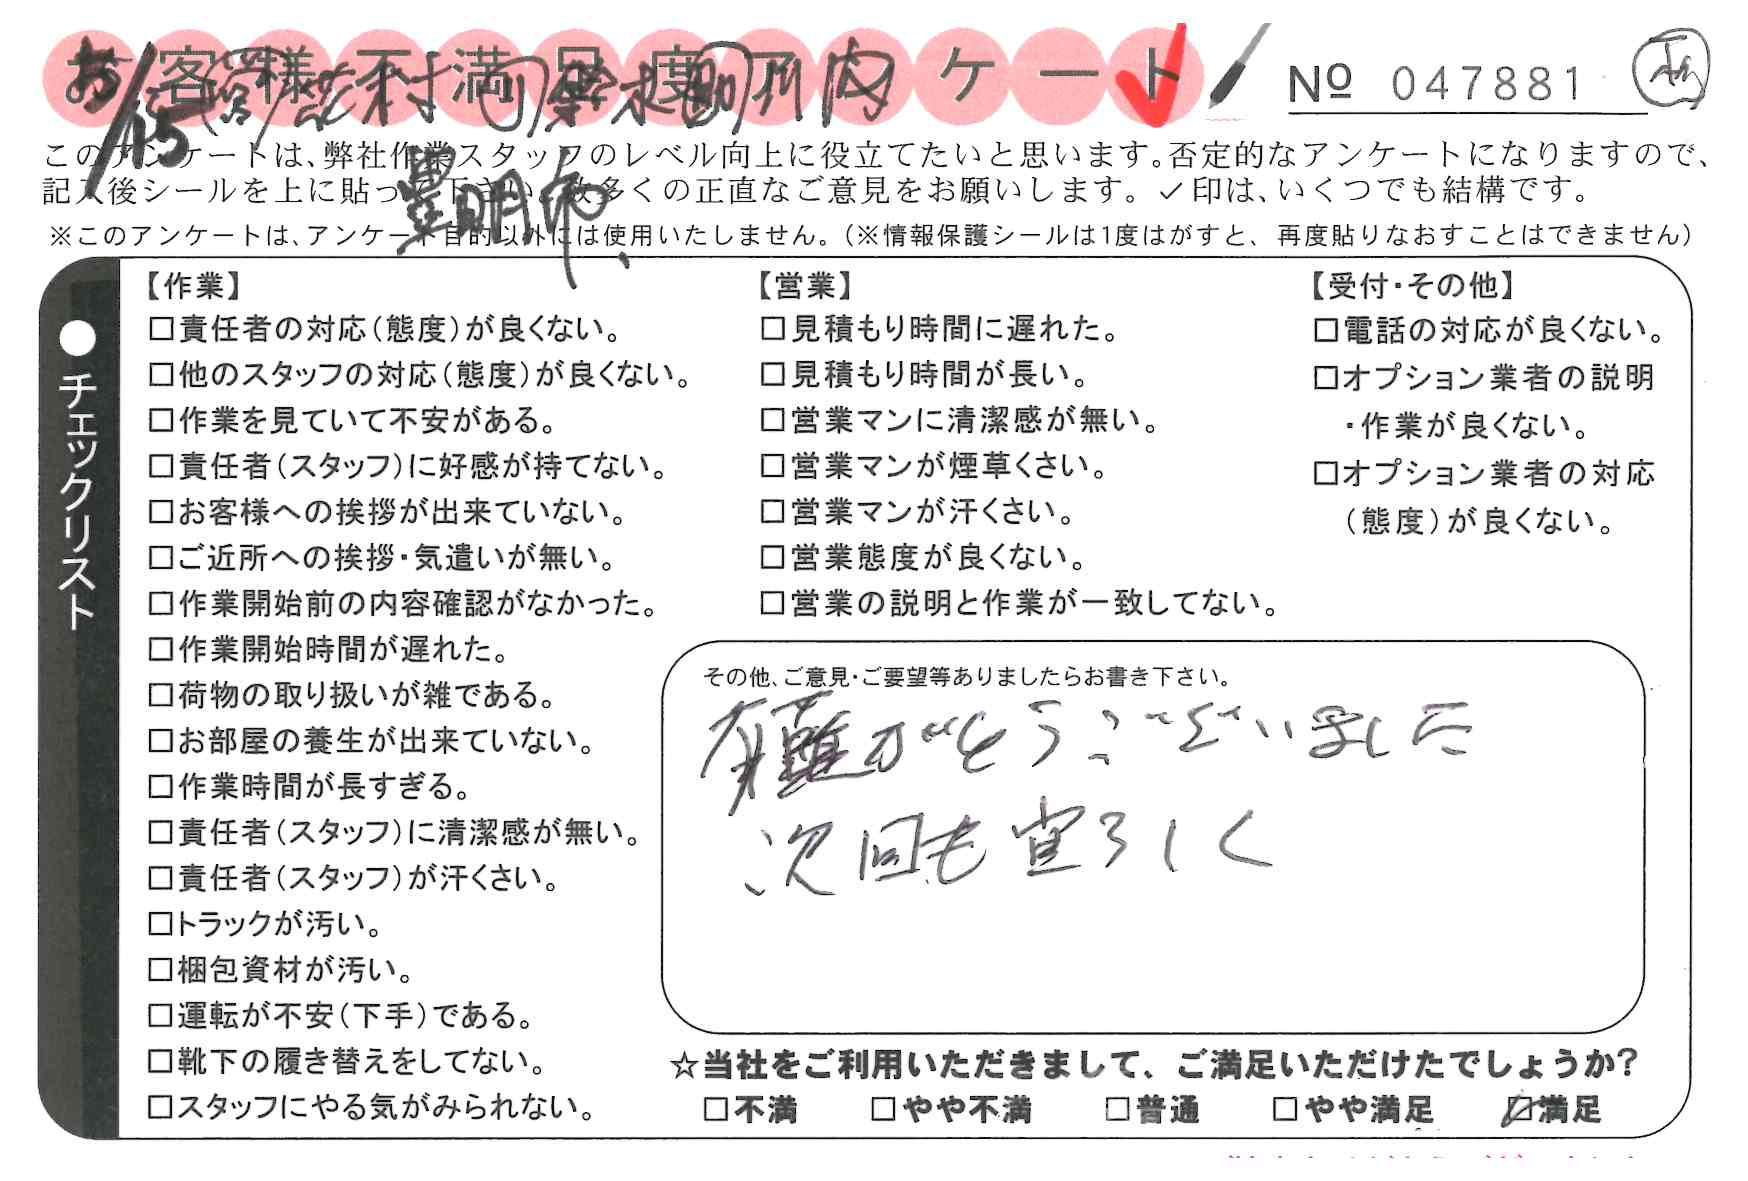 お客様不満足度アンケート
№ 047881
豊明市
このアンケートは、弊社作業スタッフのレベル向上に役立てたいと思います。否定的なアンケートになりますので、
記入後シールを上に貼って下さい。数多くの正直なご意見をお願いします。✓印は、いくつでも結構です。
※このアンケートは、アンケート目的以外には使用いたしません。(※情報保護シールは1度はがすと、再度貼りなおすことはできません)
●チェックリスト
【作業】
□責任者の対応(態度)が良くない。
□他のスタッフの対応(態度)が良くない。
□作業を見ていて不安がある。
□責任者(スタッフ)に好感が持てない。
□お客様への挨拶が出来ていない。
□ご近所への挨拶・気遣いが無い。
□作業開始前の内容確認がなかった。
□作業開始時間が遅れた。
□荷物の取り扱いが雑である。
□お部屋の養生が出来ていない。
□作業時間が長すぎる。
□責任者(スタッフ)に清潔感が無い。
□責任者(スタッフ)が汗くさい。
□トラックが汚い。
□梱包資材が汚い。
□運転が不安(下手)である。
□靴下の履き替えをしてない。
□スタッフにやる気がみられない。
【営業】
□見積もり時間に遅れた。
□見積もり時間が長い。
□営業マンに清潔感が無い。
□営業マンが煙草くさい。
□営業マンが汗くさい。
□営業態度が良くない。
□営業の説明と作業が一致してない。
【受付・その他】
□電話の対応が良くない。
□オプション業者の説明
・作業が良くない。
□オプション業者の対応
(態度)が良くない。
その他、ご意見・ご要望等ありましたらお書き下さい。
有難がとうございました
次回も宜ろしく
☆当社をご利用いただきまして、ご満足いただけたでしょうか?
□不満 □やや不満 □普通 □やや満足 ☑満足